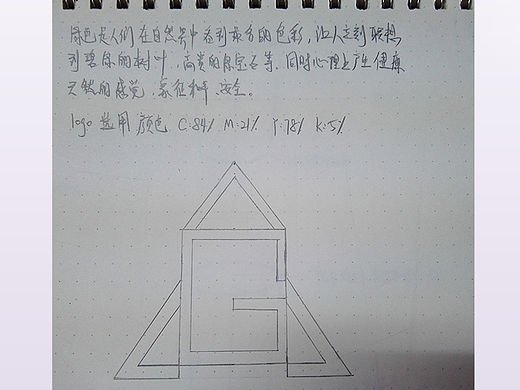 绿色是人们在自然界中看到最多的色彩，让人立刻联想
到碧绿的树叶，高贵的绿宝石等，同时心理上产生健康
天然的感觉，象征和平、安全。
logo 选用颜色 C:84% M:21% Y:78% K:5%